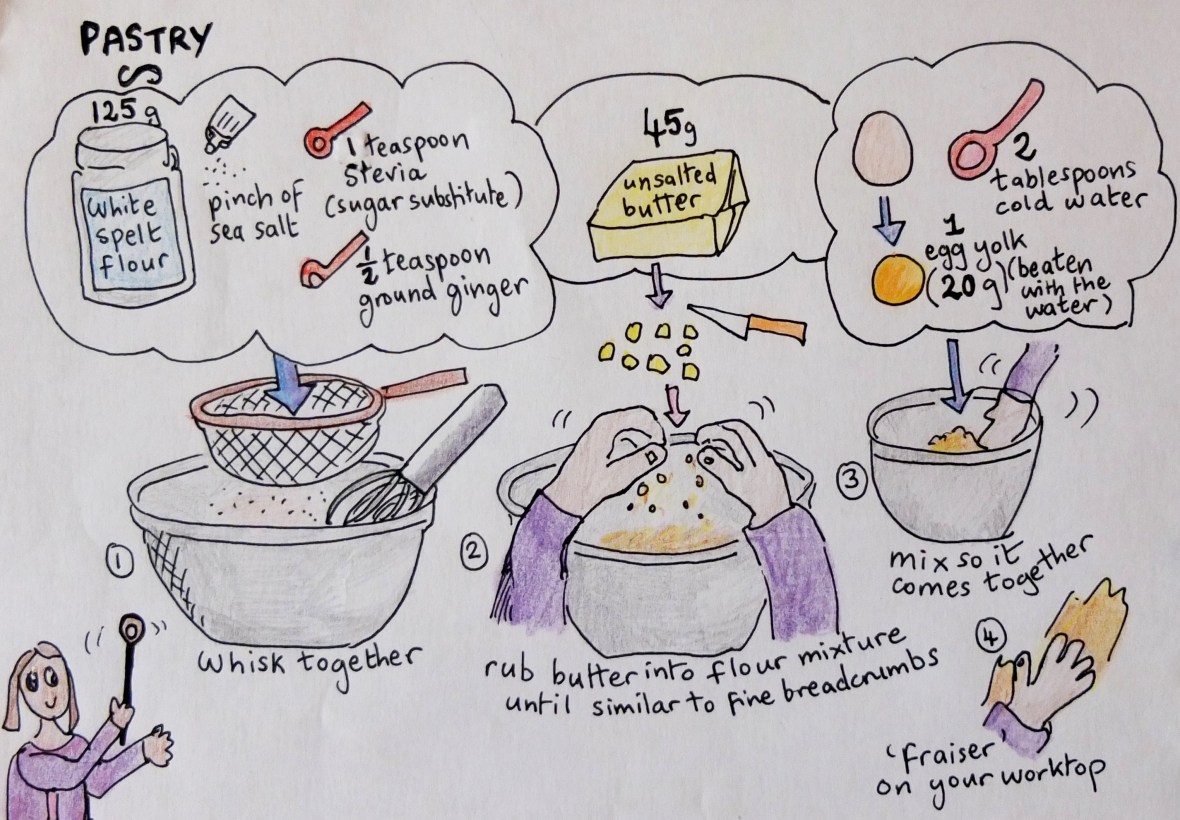 PASTRY
125g
white
spelt
flour
pinch of
sea salt
1 teaspoon
Stevia
(sugar substitute)
1/2 teaspoon
ground ginger
45g
unsalted
butter
2
tablespoons
cold water
1
egg yolk
(20g)(beaten
with the
water)
1
whisk together
2
rub butter into flour mixture
until similar to fine breadcrumbs
3
mix so it
comes together
4
'fraiser'
on your worktop